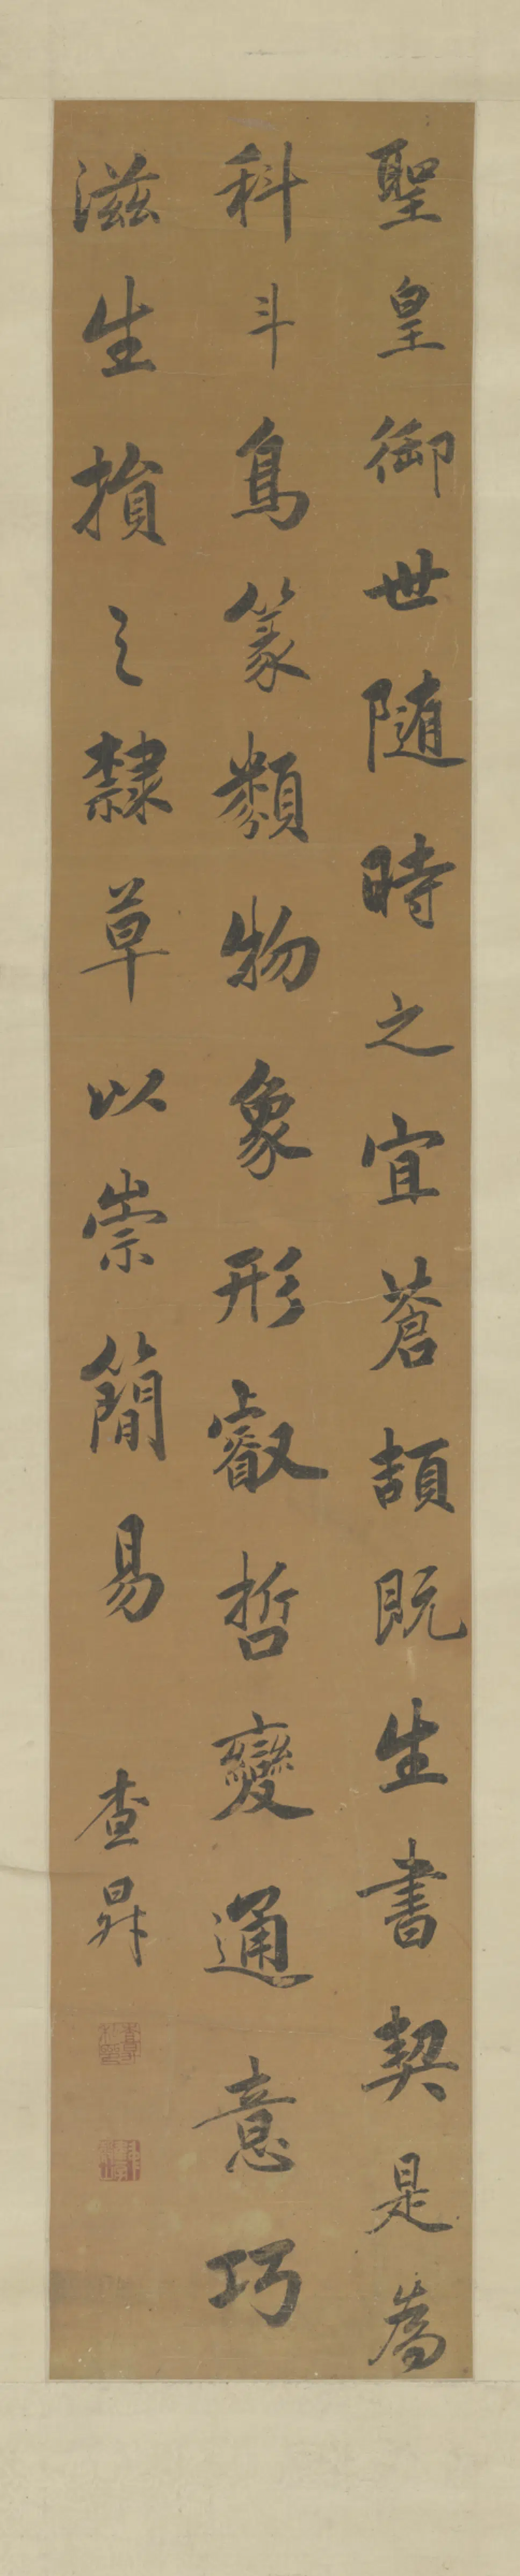 聖皇御世随時之宜蒼頡既生書契是為
科斗鳥篆類物象形叡哲變通意巧
滋生損之隸草以崇簡易
查昇